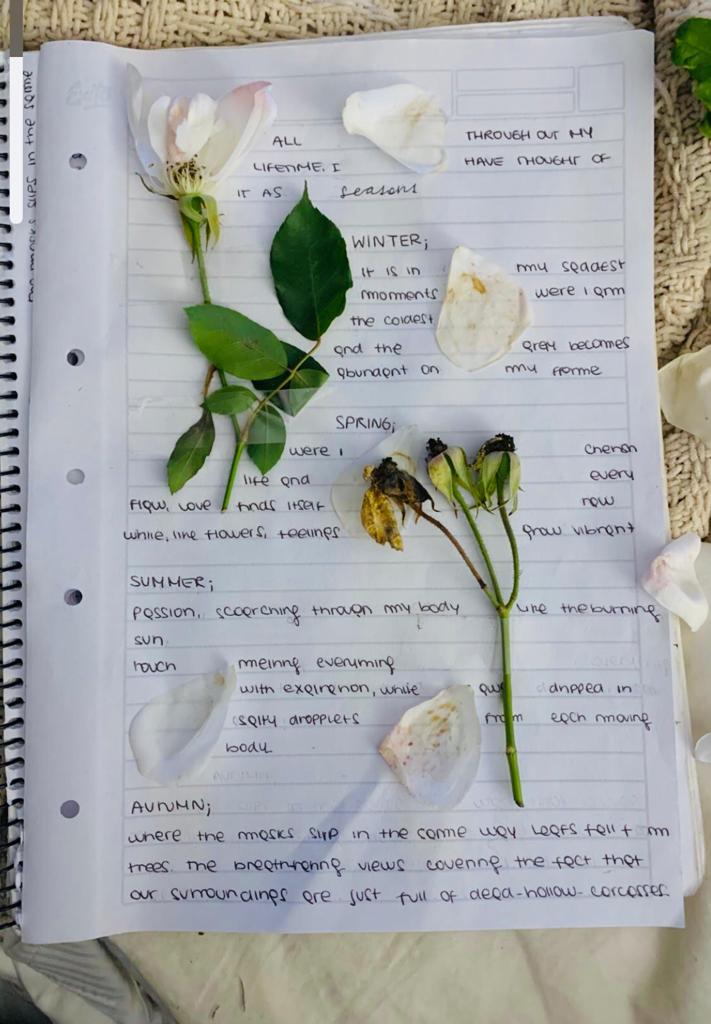 ALL THROUGH OUT MY
LIFETIME. I HAVE THOUGHT OF
IT AS seasons
WINTER;
it is in my saddest
moments were I am
the coldest
and the grey becomes
abundant on my frame
SPRING;
were I cherish
life and every
flaw, love finds itself raw
while, like flowers, feelings grow vibrant
SUMMER;
passion, scorching through my body like the burning
sun.
touch melting everything
with exploration, while dripped in
salty dropplets from each moving
body.
AUTUMN;
where the masks slip in the same way leafs fall from
trees. The breathtaking views covering the fact that
our surroundings are just full of dead-hollow-carcasses.
the masks slips in the same